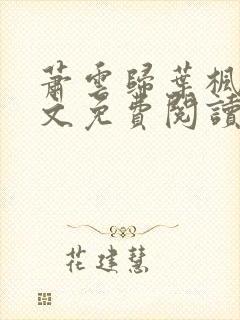 蕭雲歸葉楓
文免費閱讀
花建慧